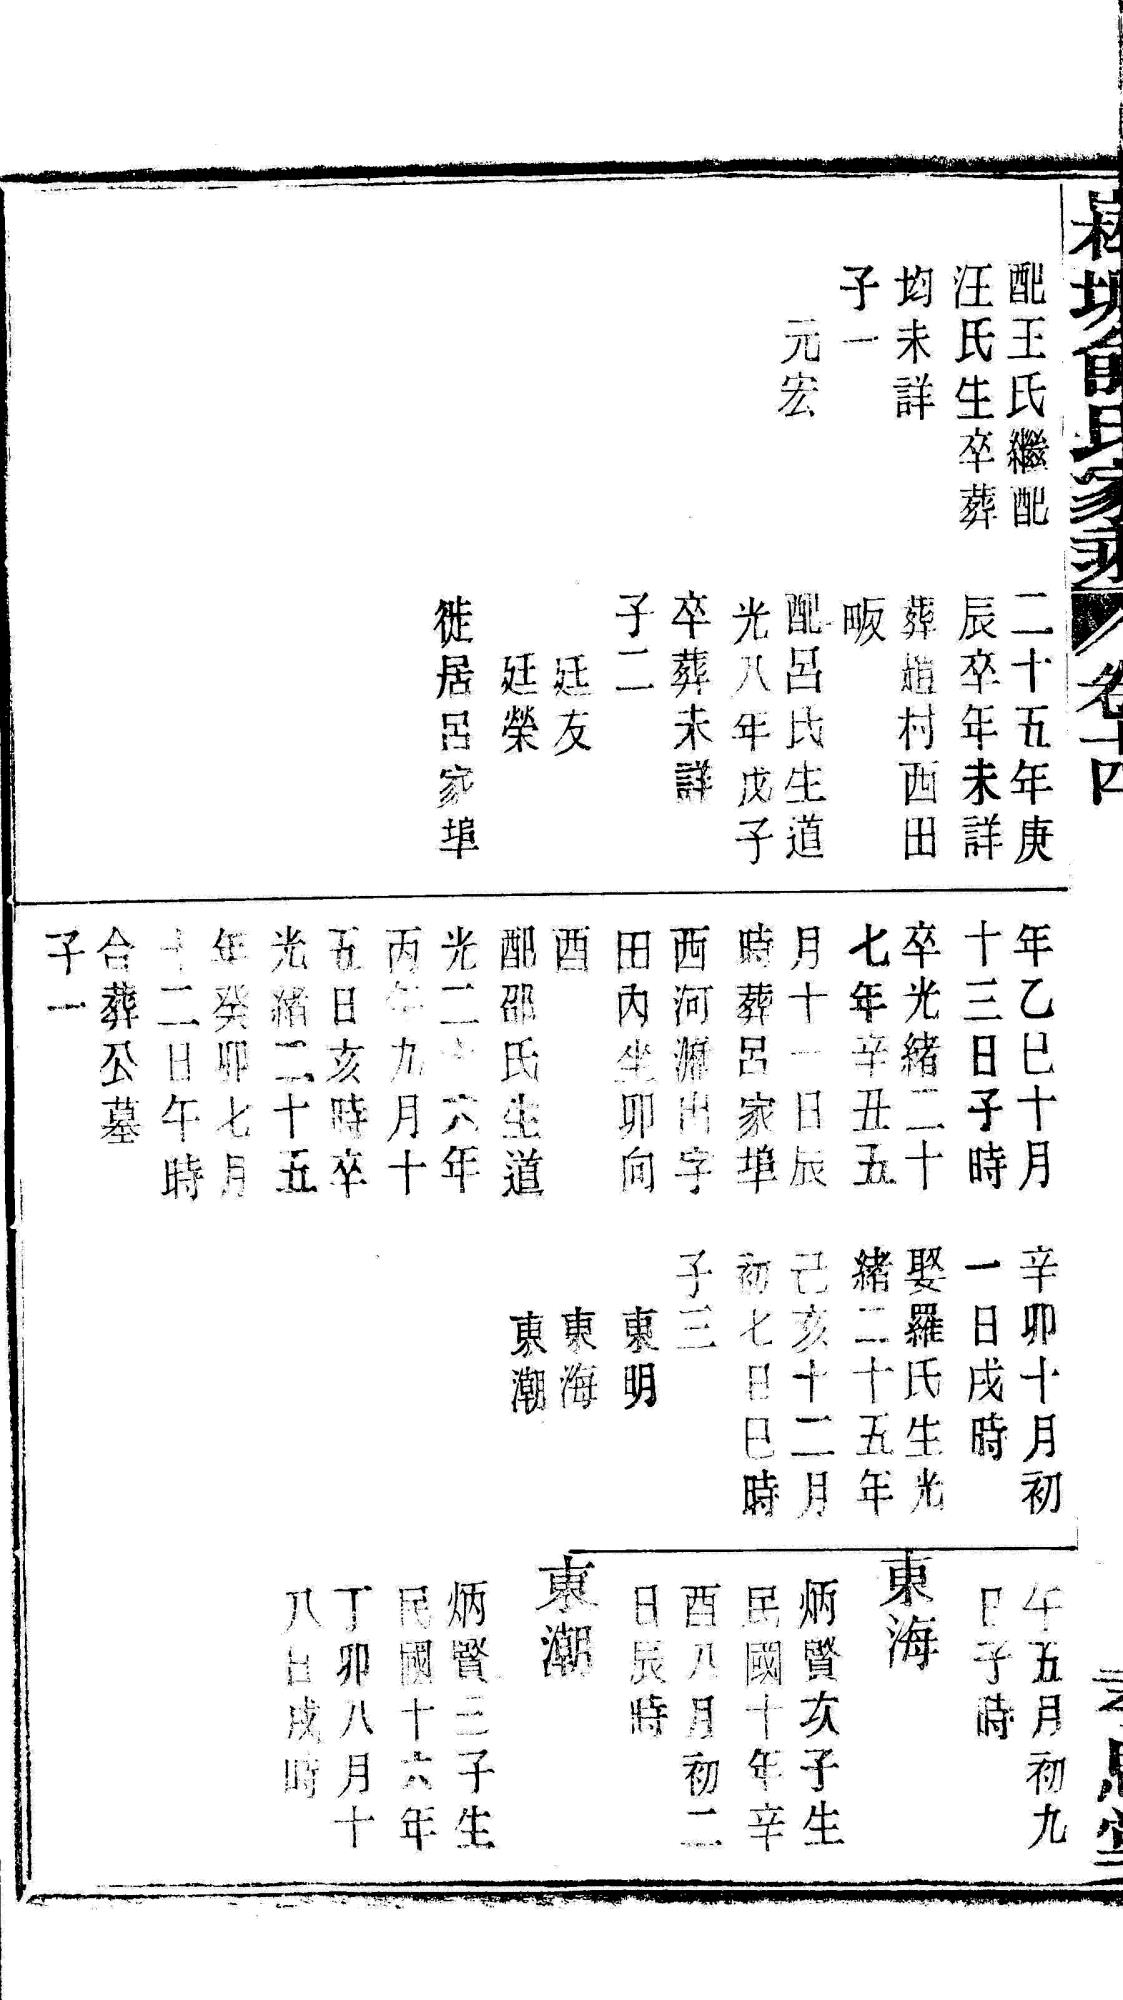 俞氏家乘 卷十四
配王氏繼配
汪氏生卒葬
均未詳
子一
元宏
二十五年庚
辰卒年未詳
葬趙村西田
畈
配呂氏生道
光八年戊子
卒葬未詳
子二
廷友
廷榮
徙居呂家埠
年乙巳十月
十三日子時
卒光緒二十
七年辛丑五
月十一日辰
時葬呂家埠
西河源出字
田內坐卯向
酉
配邵氏生道
光二十六年
丙午九月十
五日亥時卒
光緒二十五
年癸卯七月
十二日午時
合葬公墓
子一
辛卯十月初
一日戌時
娶羅氏生光
緒二十五年
己亥十二月
初七日巳時
子三
東明
東海
東潮
午五月初九
日子時
東海
炳賢次子生
民國十年辛
酉八月初二
日辰時
東潮
炳賢三子生
民國十六年
丁卯八月十
八日戌時
思堂